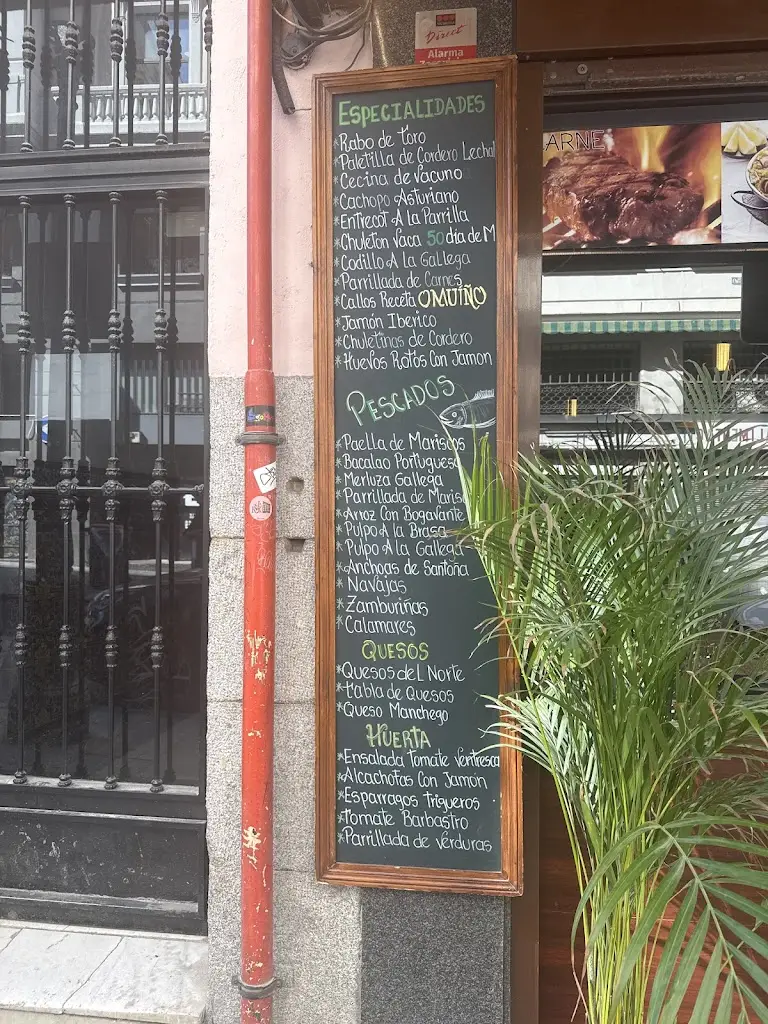 Direct
Alarma
ESPECIALIDADES
*Rabo de toro
*Paletilla de Cordero Lechal
*Cecina de vacuno
*Cachopo Asturiano
*Entrecot A la Parrilla
*Chuleton Vaca 50 dia de M
*Codillo A La Gallega
*Parrillada de Carnes
*Callos Receta OMUIÑO
*Jamón Iberico
*Chuletinas de Cordero
*Huevos Rotos Con Jamon
PESCADOS
*Paella de Mariscos
*Bacalao Portugues
*Merluza Gallega
*Parrillada de Maris
*Arroz Con Bogavante
*Pulpo A la Brasa
*Pulpo A la Gallega
*Anchoas de Santoña
*Navajas
*Zamburiñas
*Calamares
QUESOS
*Quesos del Norte
*tabla de Quesos
*Queso Manchego
HUERTA
*Ensalada Tomate Ventresca
*Alcachofas Con Jamón
*Esparragos trigueros
*tomate Barbastro
*Parrillada de verduras
ARNE